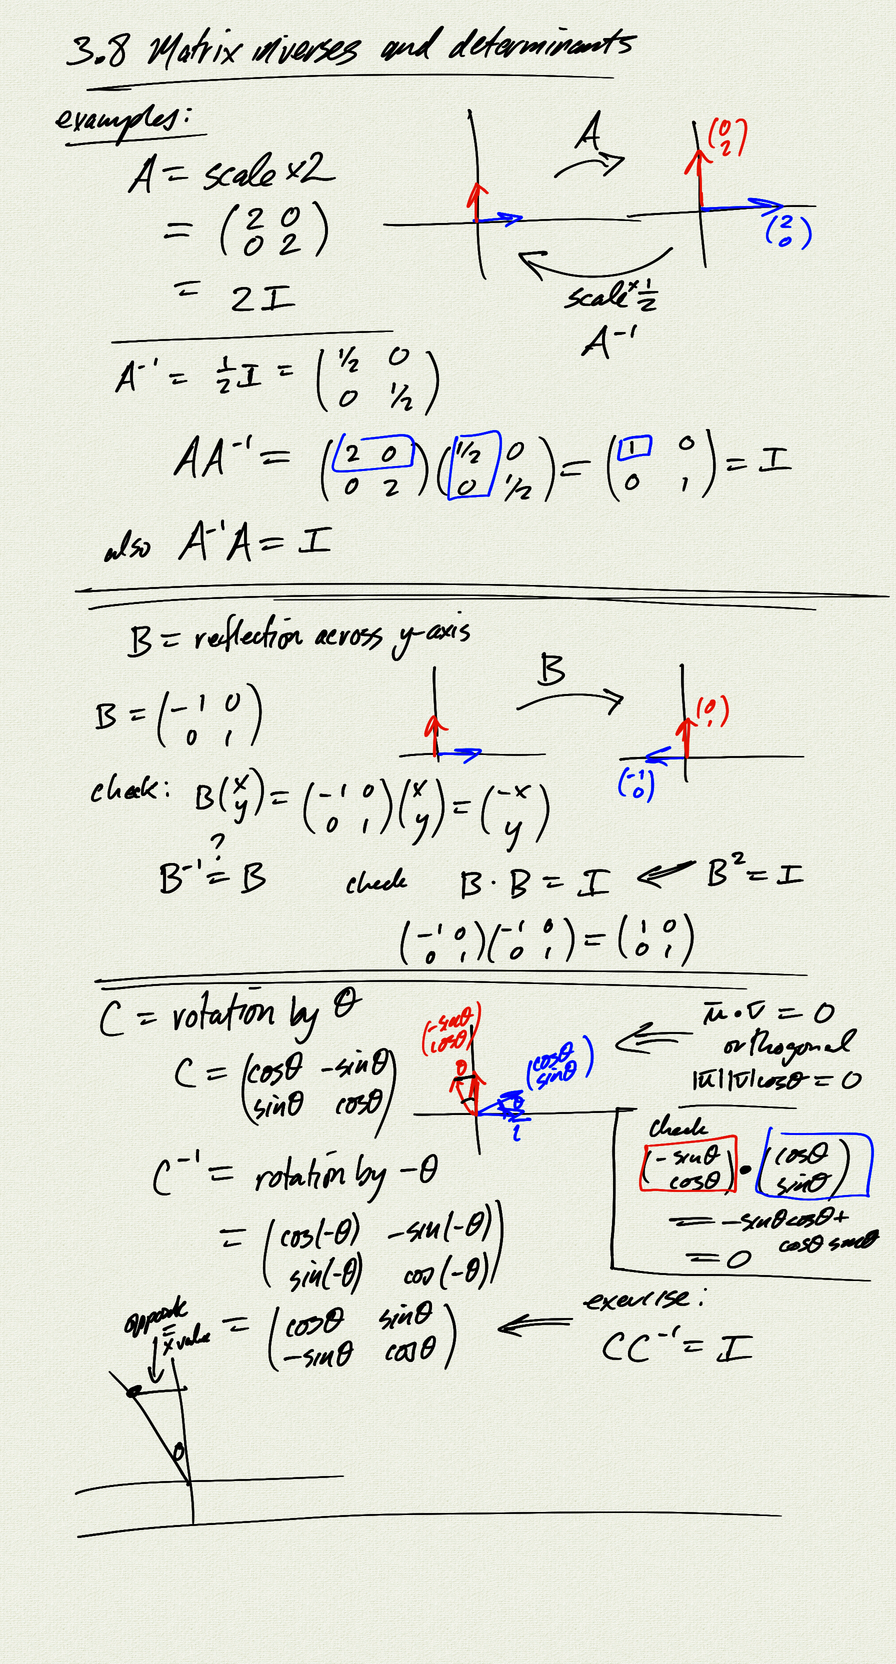 3.8 Matrix inverses and determinants
examples:
A = scale ×2
= (2 0
0 2)
= 2I
A
(0
2)
(2
0)
scale × 1/2
A⁻¹
A⁻¹ = 1/2 I = (1/2 0
0 1/2)
AA⁻¹ = (2 0
0 2)(1/2 0
0 1/2) = (1 0
0 1) = I
also A⁻¹A = I
B = reflection across y-axis
B = (-1 0
0 1)
B
(0
1)
(-1
0)
check: B(x
y) = (-1 0
0 1)(x
y) = (-x
y)
?
B⁻¹ = B check B·B = I ⇐ B² = I
(-1 0
0 1)(-1 0
0 1) = (1 0
0 1)
C = rotation by θ
C = (cosθ -sinθ
sinθ cosθ)
(-sinθ
cosθ)
θ
(cosθ
sinθ)
θ
⇐ u·v = 0
orthogonal
|u||v|cosθ = 0
check
(-sinθ
cosθ) · (cosθ
sinθ)
= -sinθcosθ +
cosθ sinθ
= 0
C⁻¹ = rotation by -θ
= (cos(-θ) -sin(-θ)
sin(-θ) cos(-θ))
= (cosθ sinθ
-sinθ cosθ)
⇐ exercise:
CC⁻¹ = I
opposite
=
x value
θ